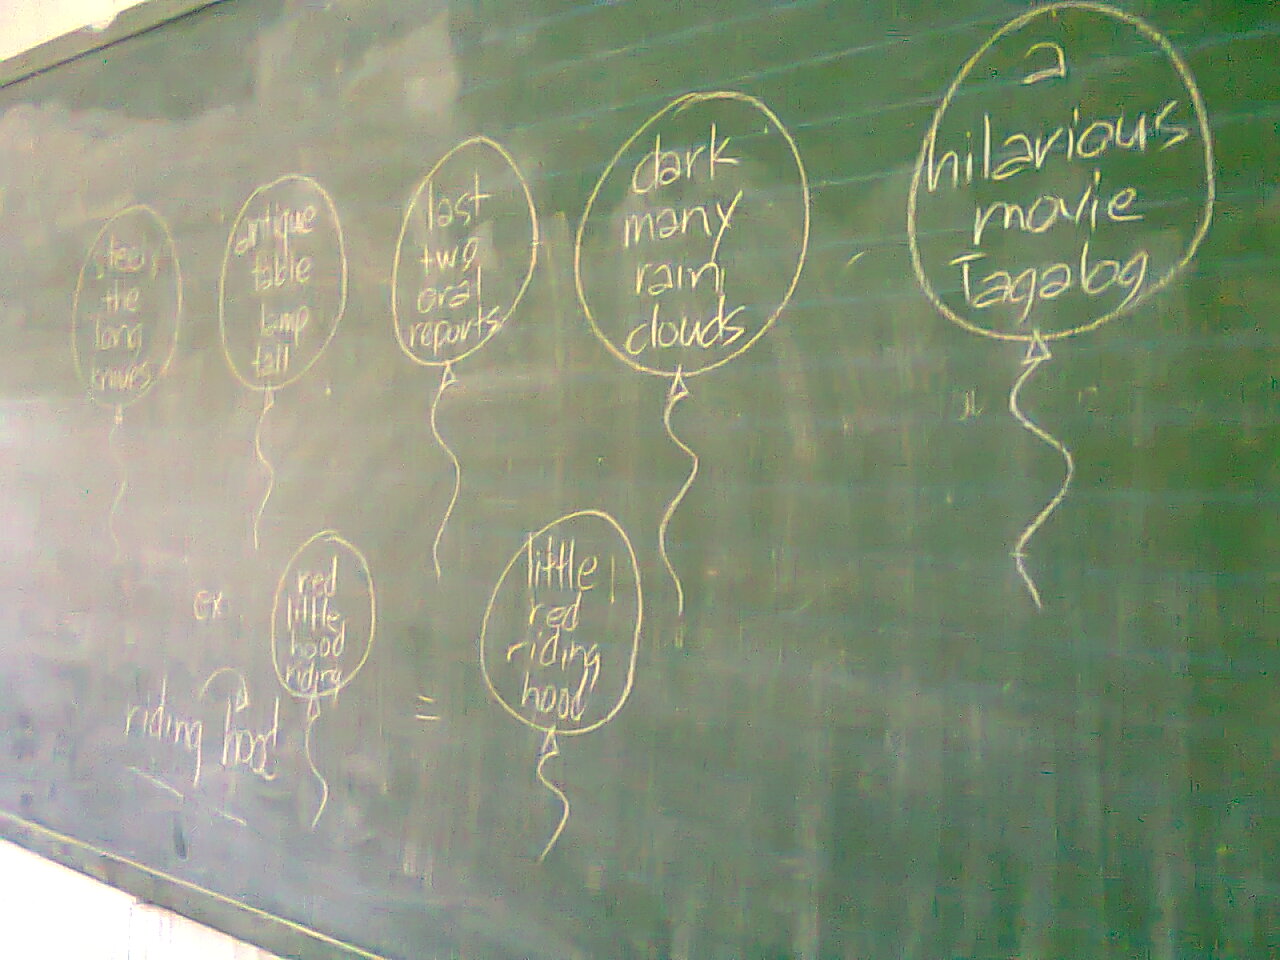 steel
the
long
knives
antique
table
lamp
tall
last
two
oral
reports
dark
many
rain
clouds
a
hilarious
movie
Tagalog
ex
red
little
hood
riding
riding hood
=
little
red
riding
hood